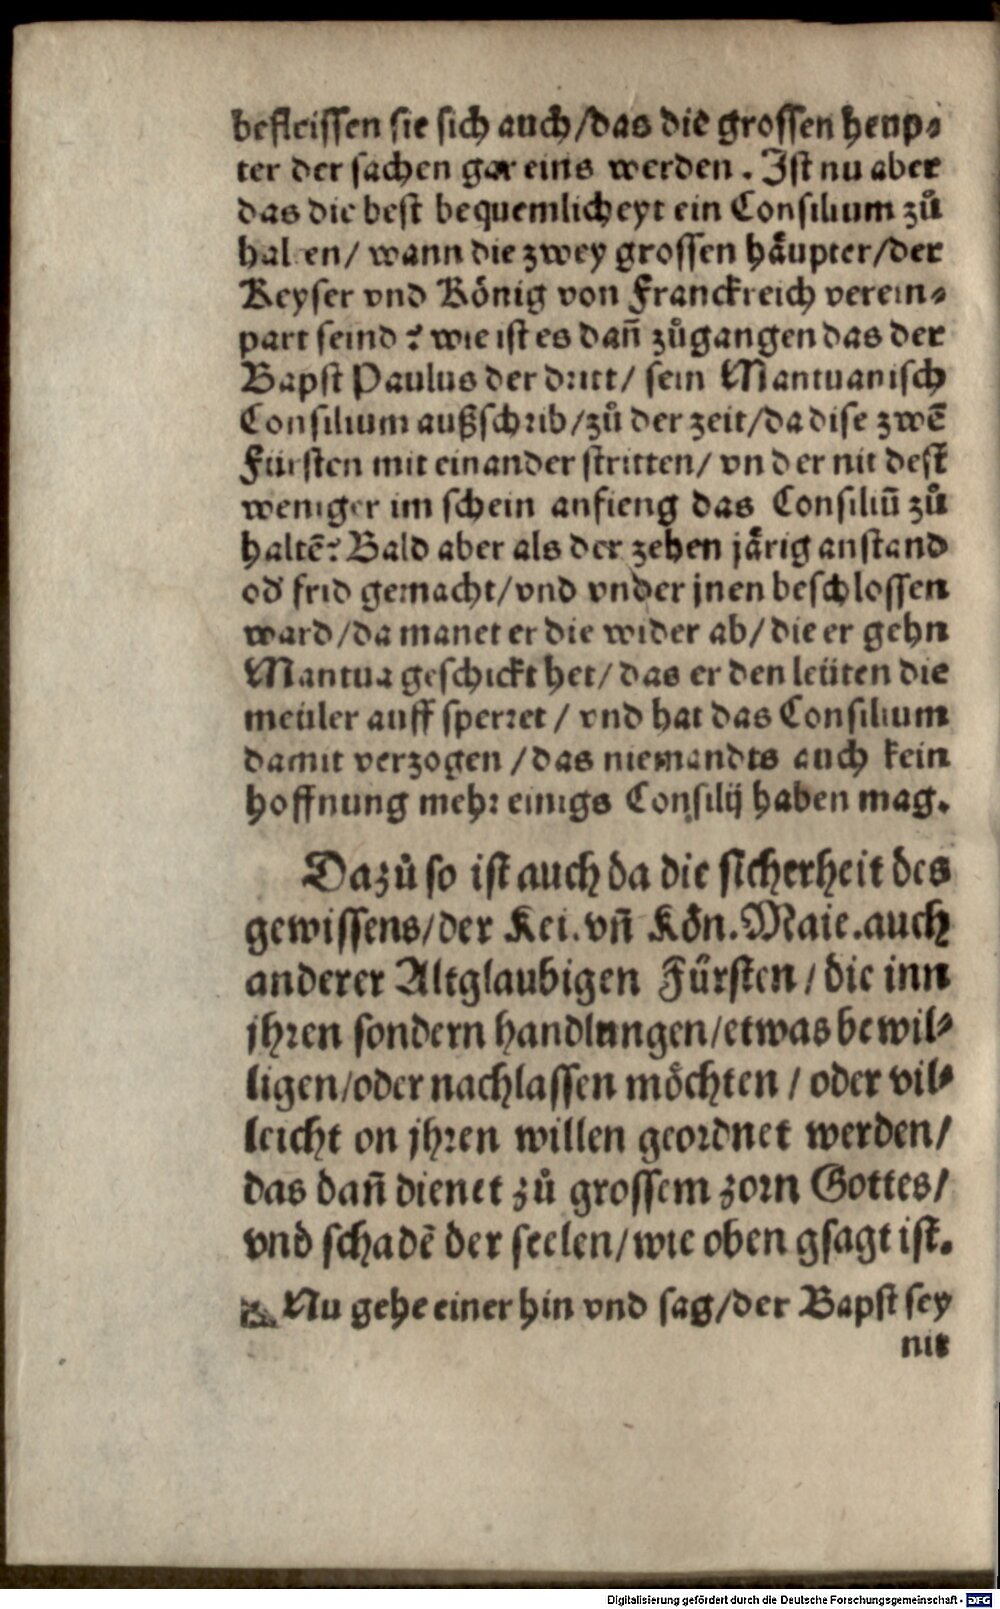 befleissen sie sich auch/das die grossen heup⸗
ter der sachen gar eins werden. Ist nu aber
das die best bequemlicheyt ein Consilium zů
halten/ wann die zwey grossen håupter/der
Keyser vnd König von Franckreich verein⸗
part seind? wie ist es dañ zůgangen das der
Bapst Paulus der dritt/ sein Mantuanisch
Consilium außschrib/zů der zeit/da dise zwē
Fürsten mit einander stritten/ vnd er nit dest
weniger im schein anfieng das Consiliū zů
haltē? Bald aber als der zehen jårig anstand
od' frid gemacht/vnd vnder jnen beschlossen
ward/da manet er die wider ab/die er gehn
Mantua geschickt het/das er den leüten die
meüler auff sperret/ vnd hat das Consilium
damit verzogen/das niemandts auch kein
hoffnung mehr einigs Consilij haben mag.
Dazů so ist auch da die sicherheit des
gewissens/der Kei. vñ Kön. Maie. auch
anderer Altglaubigen Fürsten/die inn
jhren sondern handlungen/etwas bewil⸗
ligen/oder nachlassen möchten/ oder vil⸗
leicht on jhren willen geordnet werden/
das dañ dienet zů grossem zorn Gottes/
vnd schadē der seelen/wie oben gsagt ist.
Nu gehe einer hin vnd sag/der Bapst sey
nit
Digitalisierung gefördert durch die Deutsche Forschungsgemeinschaft - DFG